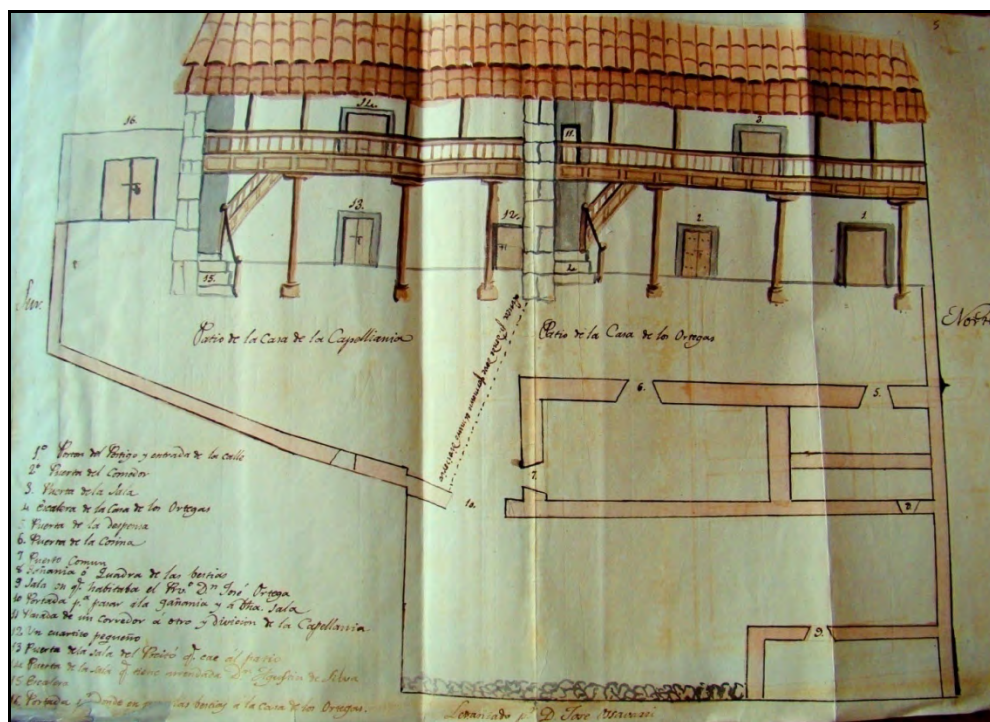 5
16.
14.
11.
3.
13.
12.
2.
1.
15.
4.
Sur.
Norte
Patio de la Casa de la Capellania
Patio de la Casa de los Ortegas
6.
5.
7.
10.
8
9.
1º Porton del Postigo y entrada de la calle
2º Puerta del Comedor
3. Puerta de la Sala
4 Escalera de la Casa de los Ortegas
5 Puerta de la despensa
6. Puerta de la Cosina
7 Puerta Comun
8 Gañania ó Quadra de las bestias
9 Sala en q.e habitaba el Pro.º Dn José Ortega
10 Portada p.a pasar a la gañania y a dha. Sala
11 Pasada de un corredor a otro y division de la Capellania
12 Un cuartito pequeño
13 Puerta de la sala del q.e cae al patio
14 Puerta de la sala q.e tiene arrendada Dn Agustin de Silva
15 Escalera
16 Portada p.r donde las bestias a la Casa de los Ortegas.
Levantado p.r D. Jose